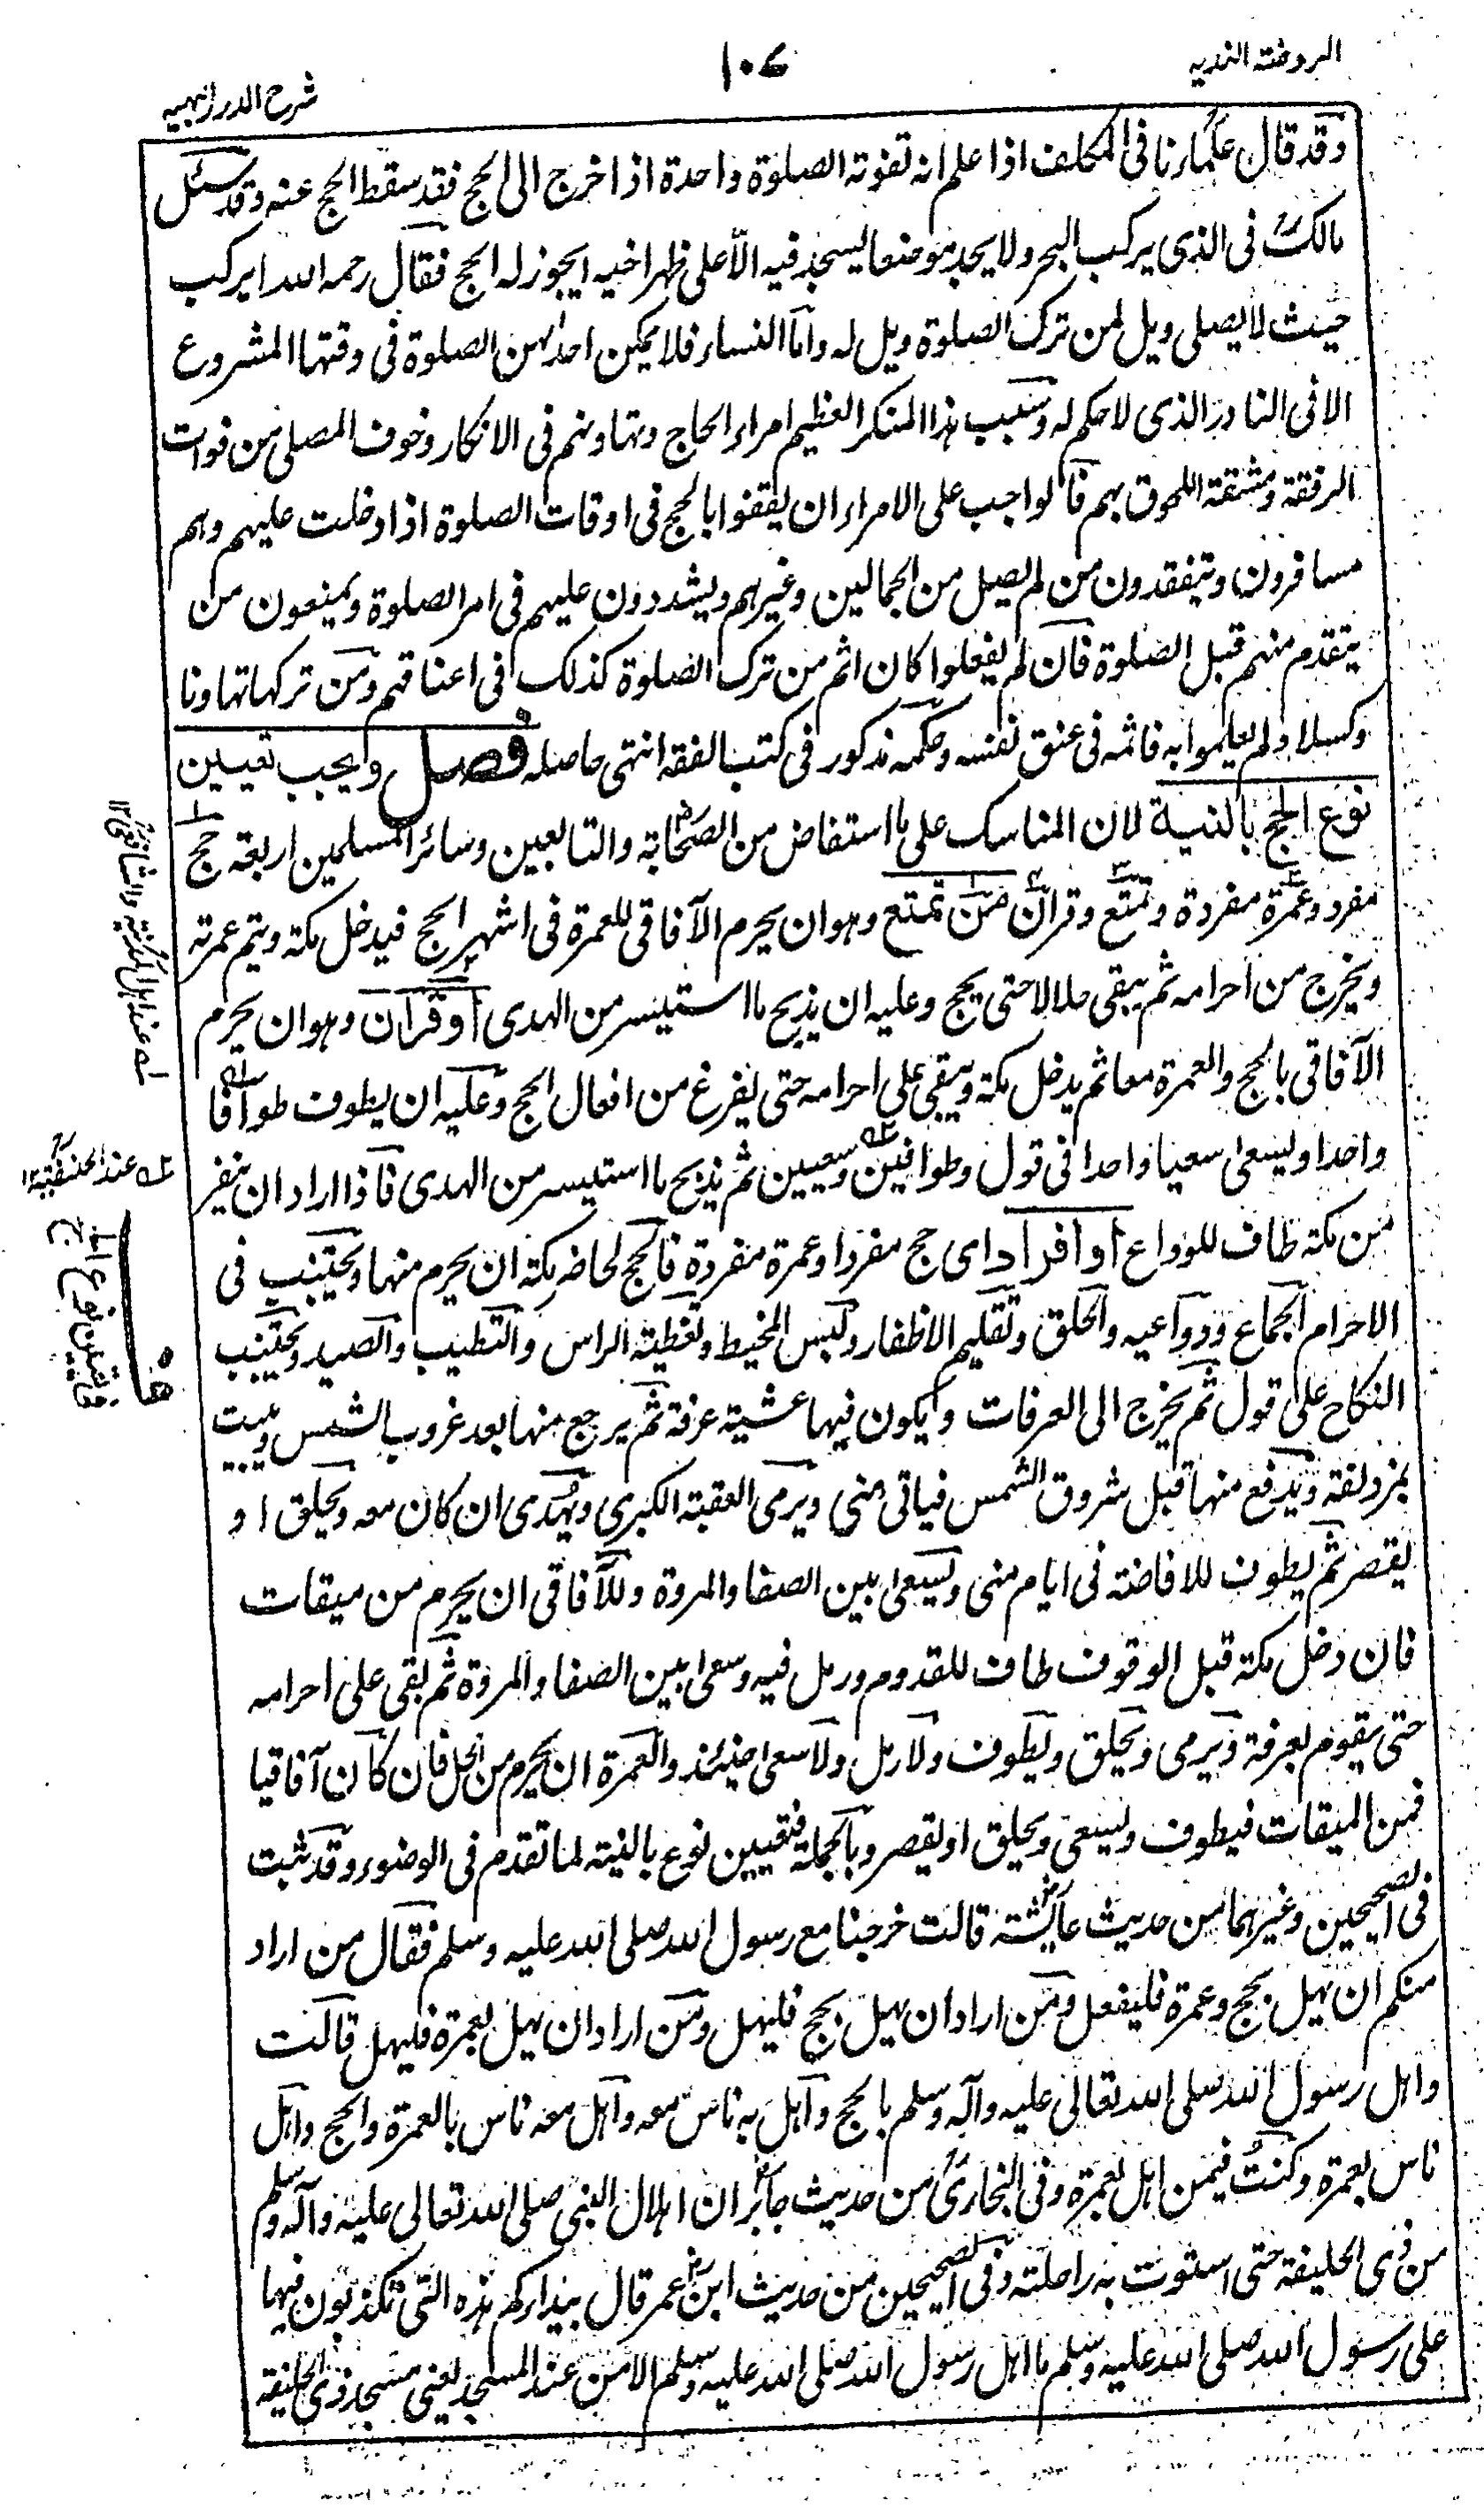 الروضة الندیه
١٠٧
شرح الدرر البهیه
وقد قال علماؤنا فی المکلف اذا علم انه تفوته الصلوة واحدة اذا خرج الی الحج فقد سقط الحج عنه وقد سئل
مالک فی الذی یرکب البحر ولا یجد موضعا یسجد فیه الا علی ظهر اخیه ایجوز له الحج فقال رحمه الله ایرکب
حیث لا یصلی ویل لمن ترک الصلوة ویل له واما النساء فلا یمکن احداهن الصلوة فی وقتها المشروع
الا فی النادر الذی لا حکم له وسبب هذا المنکر العظیم امراء الحاج وتهاونهم فی الانکار وخوف المصلی من فوات
الرفقة ومشقة اللحوق بهم فالواجب علی الامراء ان یقفوا بالحج فی اوقات الصلوة اذا دخلت علیهم وهم
مسافرون ویتفقدون من لم یصل من الجمالین وغیرهم ویشددون علیهم فی امر الصلوة ویمنعون من
یتقدم منهم قبل الصلوة فان لم یفعلوا کان اثم من ترک الصلوة کذلک فی اعناقهم ومن ترکها تهاونا
وکسلا ولم یعلموا به فاثمه فی عنق نفسه وحکمه مذکور فی کتب الفقه انتهی حاصله فصل ویجب تعیین
نوع الحج بالنیة لان المناسک علی ما استفاض من الصحابة والتابعین وسائر المسلمین اربعة حج
مفرد وعمرة مفردة وتمتع وقران من تمتع وهو ان یحرم الآفاقی للعمرة فی اشهر الحج فیدخل مکة ویتم عمرته
ویخرج من احرامه ثم یبقی حلالا حتی یحج وعلیه ان یذبح ما استیسر من الهدی او قران وهو ان یحرم
الآفاقی بالحج والعمرة معا ثم یدخل مکة ویبقی علی احرامه حتی یفرغ من افعال الحج وعلیه ان یطوف طوافا
واحدا ویسعی سعیا واحدا فی قول وطوافین وسعیین ثم یذبح ما استیسر من الهدی فاذا اراد ان ینفر
من مکة طاف للوداع او افراد ای حج مفردا وعمرة مفردة فالحج لحاضر مکة ان یحرم منها ویجتنب فی
الاحرام الجماع ودواعیه والحلق وتقلیم الاظفار ولبس المخیط وتغطیة الراس والتطیب والصید ویجتنب
النکاح علی قول ثم یخرج الی العرفات ویکون فیها عشیة عرفة ثم یرجع منها بعد غروب الشمس ویبیت
بمزدلفة ویدفع منها قبل شروق الشمس فیاتی منی ویرمی العقبة الکبری ویهدی ان کان معه ویحلق او
یقصر ثم یطوف للافاضة فی ایام منی ویسعی بین الصفا والمروة وللآفاقی ان یحرم من میقات
فان دخل مکة قبل الوقوف طاف للقدوم ورمل فیه وسعی بین الصفا والمروة ثم بقی علی احرامه
حتی یقوم بعرفة ویرمی ویحلق ویطوف ولا رمل ولا سعی حینئذ والعمرة ان یحرم من الحل فان کان آفاقیا
فمن المیقات فیطوف ویسعی ویحلق او یقصر وبالجملة فتعیین نوع بالنیة لما تقدم فی الوضوء وقد ثبت
فی الصحیحین وغیرهما من حدیث عائشة قالت خرجنا مع رسول الله صلی الله علیه وسلم فقال من اراد
منکم ان یهل بحج وعمرة فلیفعل ومن اراد ان یهل بحج فلیهل ومن اراد ان یهل بعمرة فلیهل قالت
واهل رسول الله صلی الله تعالی علیه وآله وسلم بالحج واهل به ناس معه واهل معه ناس بالعمرة والحج واهل
ناس بعمرة وکنت فیمن اهل بعمرة وفی البخاری من حدیث جابر ان اهلال النبی صلی الله تعالی علیه وآله وسلم
من ذی الحلیفة حتی استوت به راحلته وفی الصحیحین من حدیث ابن عمر قال بیداءکم هذه التی تکذبون فیها
علی رسول الله صلی الله علیه وسلم ما اهل رسول الله صلی الله علیه وسلم الا من عند المسجد یعنی مسجد ذی الحلیفة
عند الحنفیة ١٢
تعیین نوع الحج